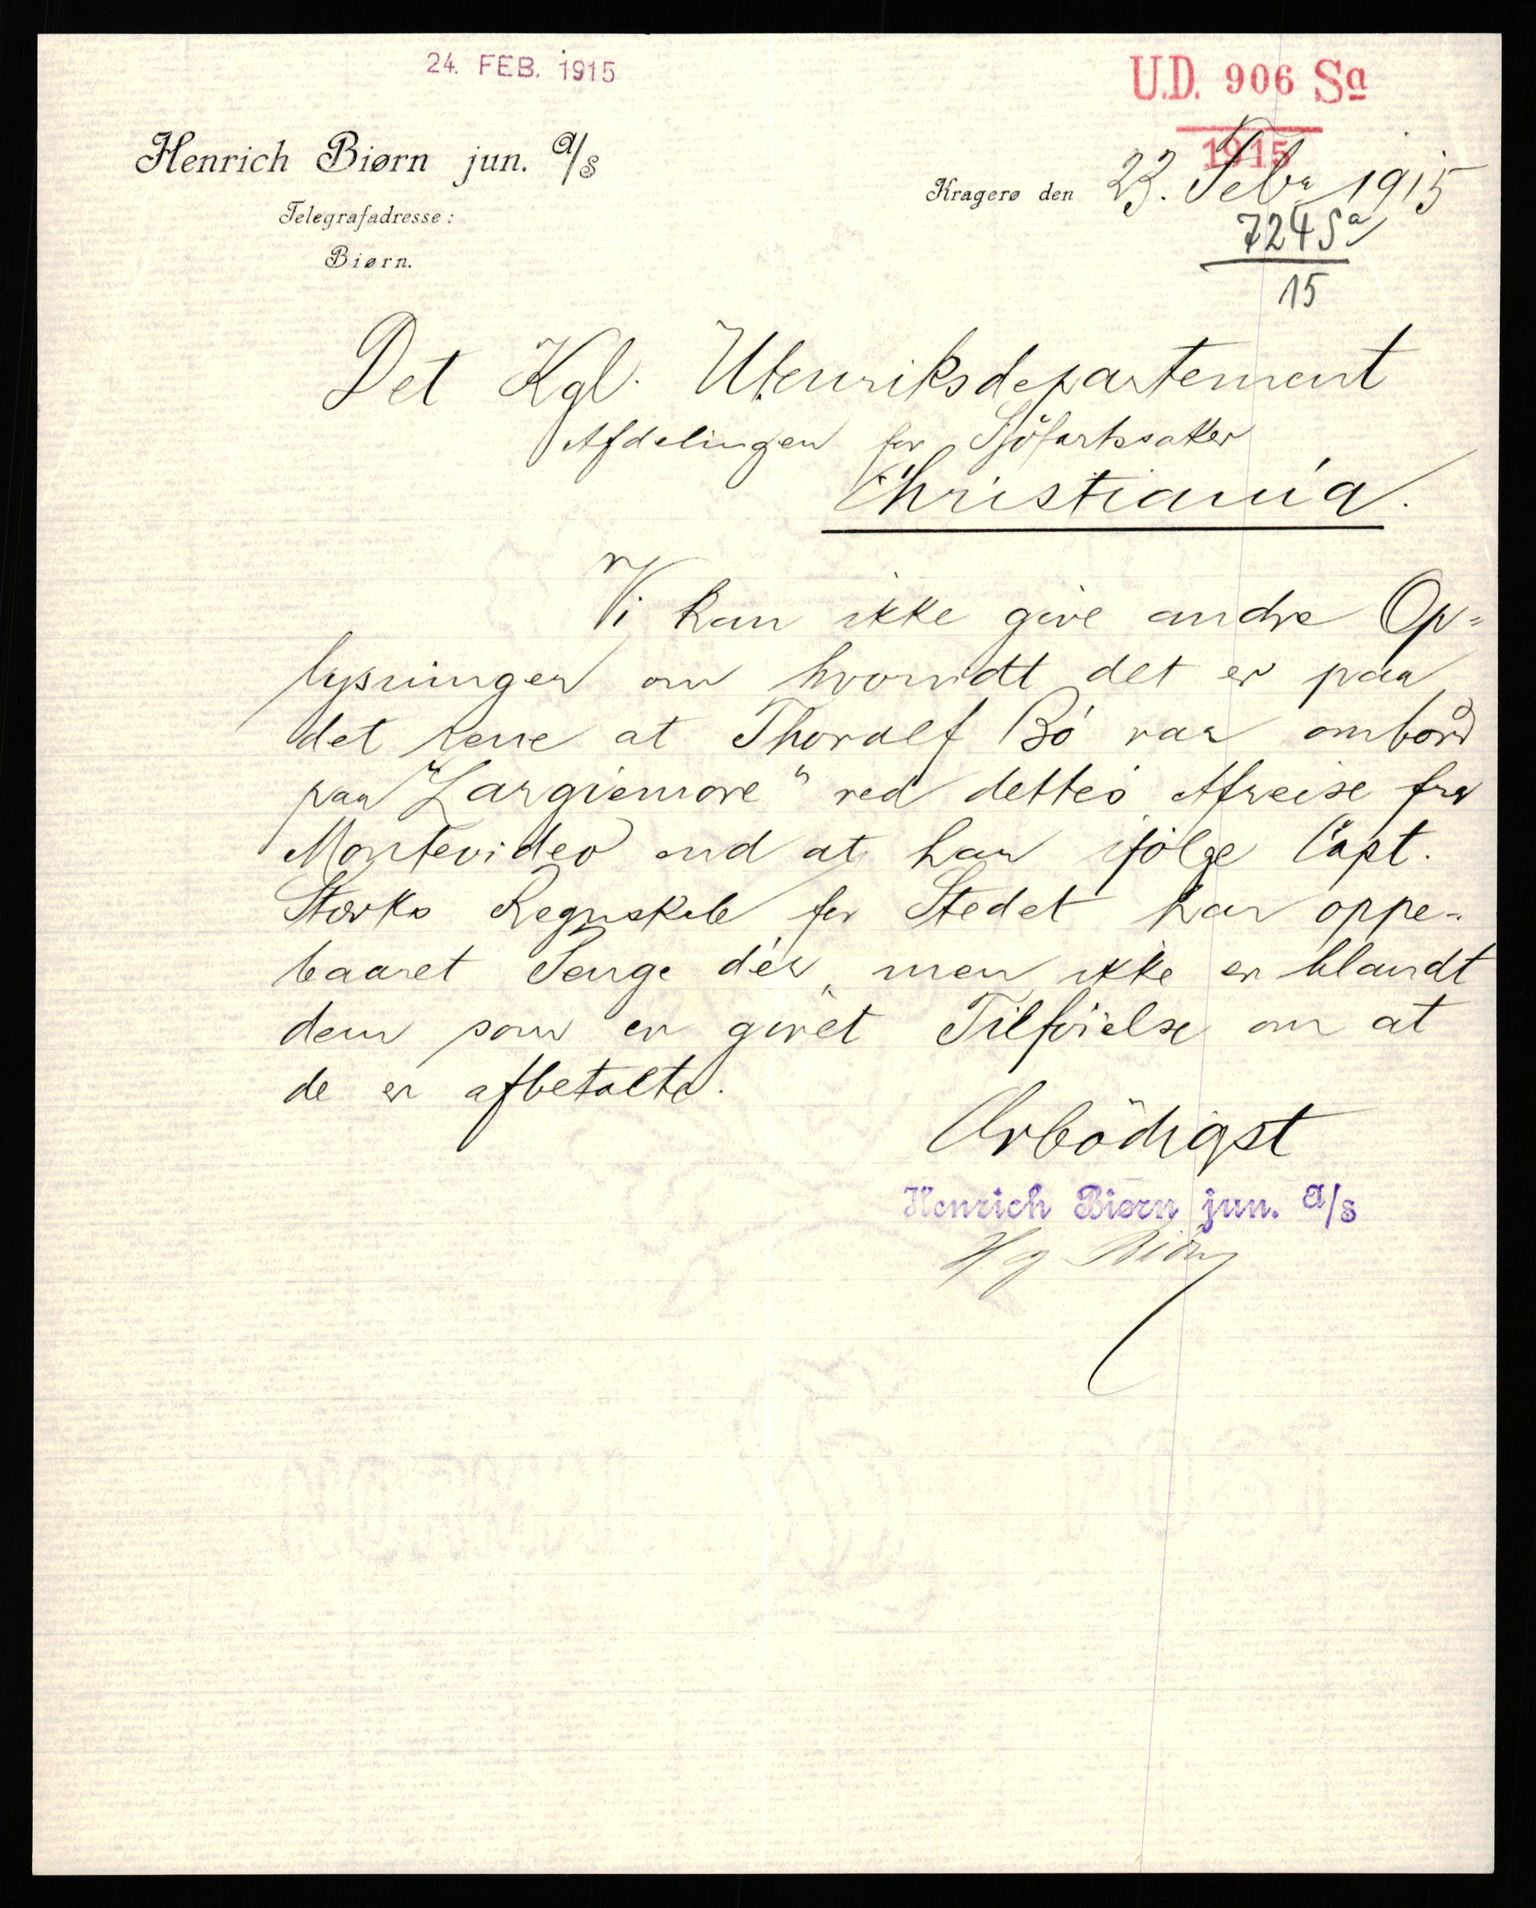 24. FEB. 1915
U.D. 906 Sa
1915
Henrich Biørn jun. A/S
Telegrafadresse:
Biørn.
Kragerø den 23. Febr 1915
724 Sa
15
Det Kgl. Utenriksdepartement
Afdelingen for Sjöfartssaker
Christiania.
Vi kan ikke give andre Op=
lysninger om hvorvidt det er paa
det rene at Thoralf Bö var ombord
paa "Largiemore" ved dettes Afreise fra
Montevideo end at han ifölge Capt.
Størks Regnskab for Stedet har oppe-
baaret Penge dér, men ikke er blandt
dem som er givet Tilföielse om at
de er afbetalte.
Ærbödigst
Henrich Biørn jun. A/S
Hg Biørn